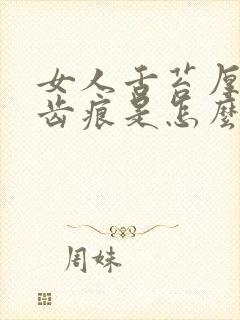 女人舌苔厚
齿痕是怎麽
周妹